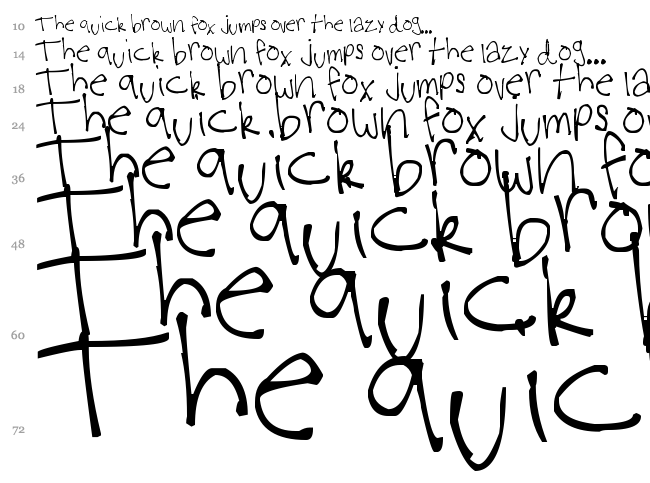 10 The quick brown fox jumps over the lazy dog...
14 The quick brown fox jumps over the lazy dog...
18 The quick brown fox jumps over the la
24 The quick brown fox jumps ov
36 The quick brown fo
48 The quick bro
60 The quick b
72 The quic